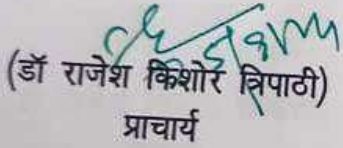 (डॉ राजेश किशोर त्रिपाठी)
प्राचार्य